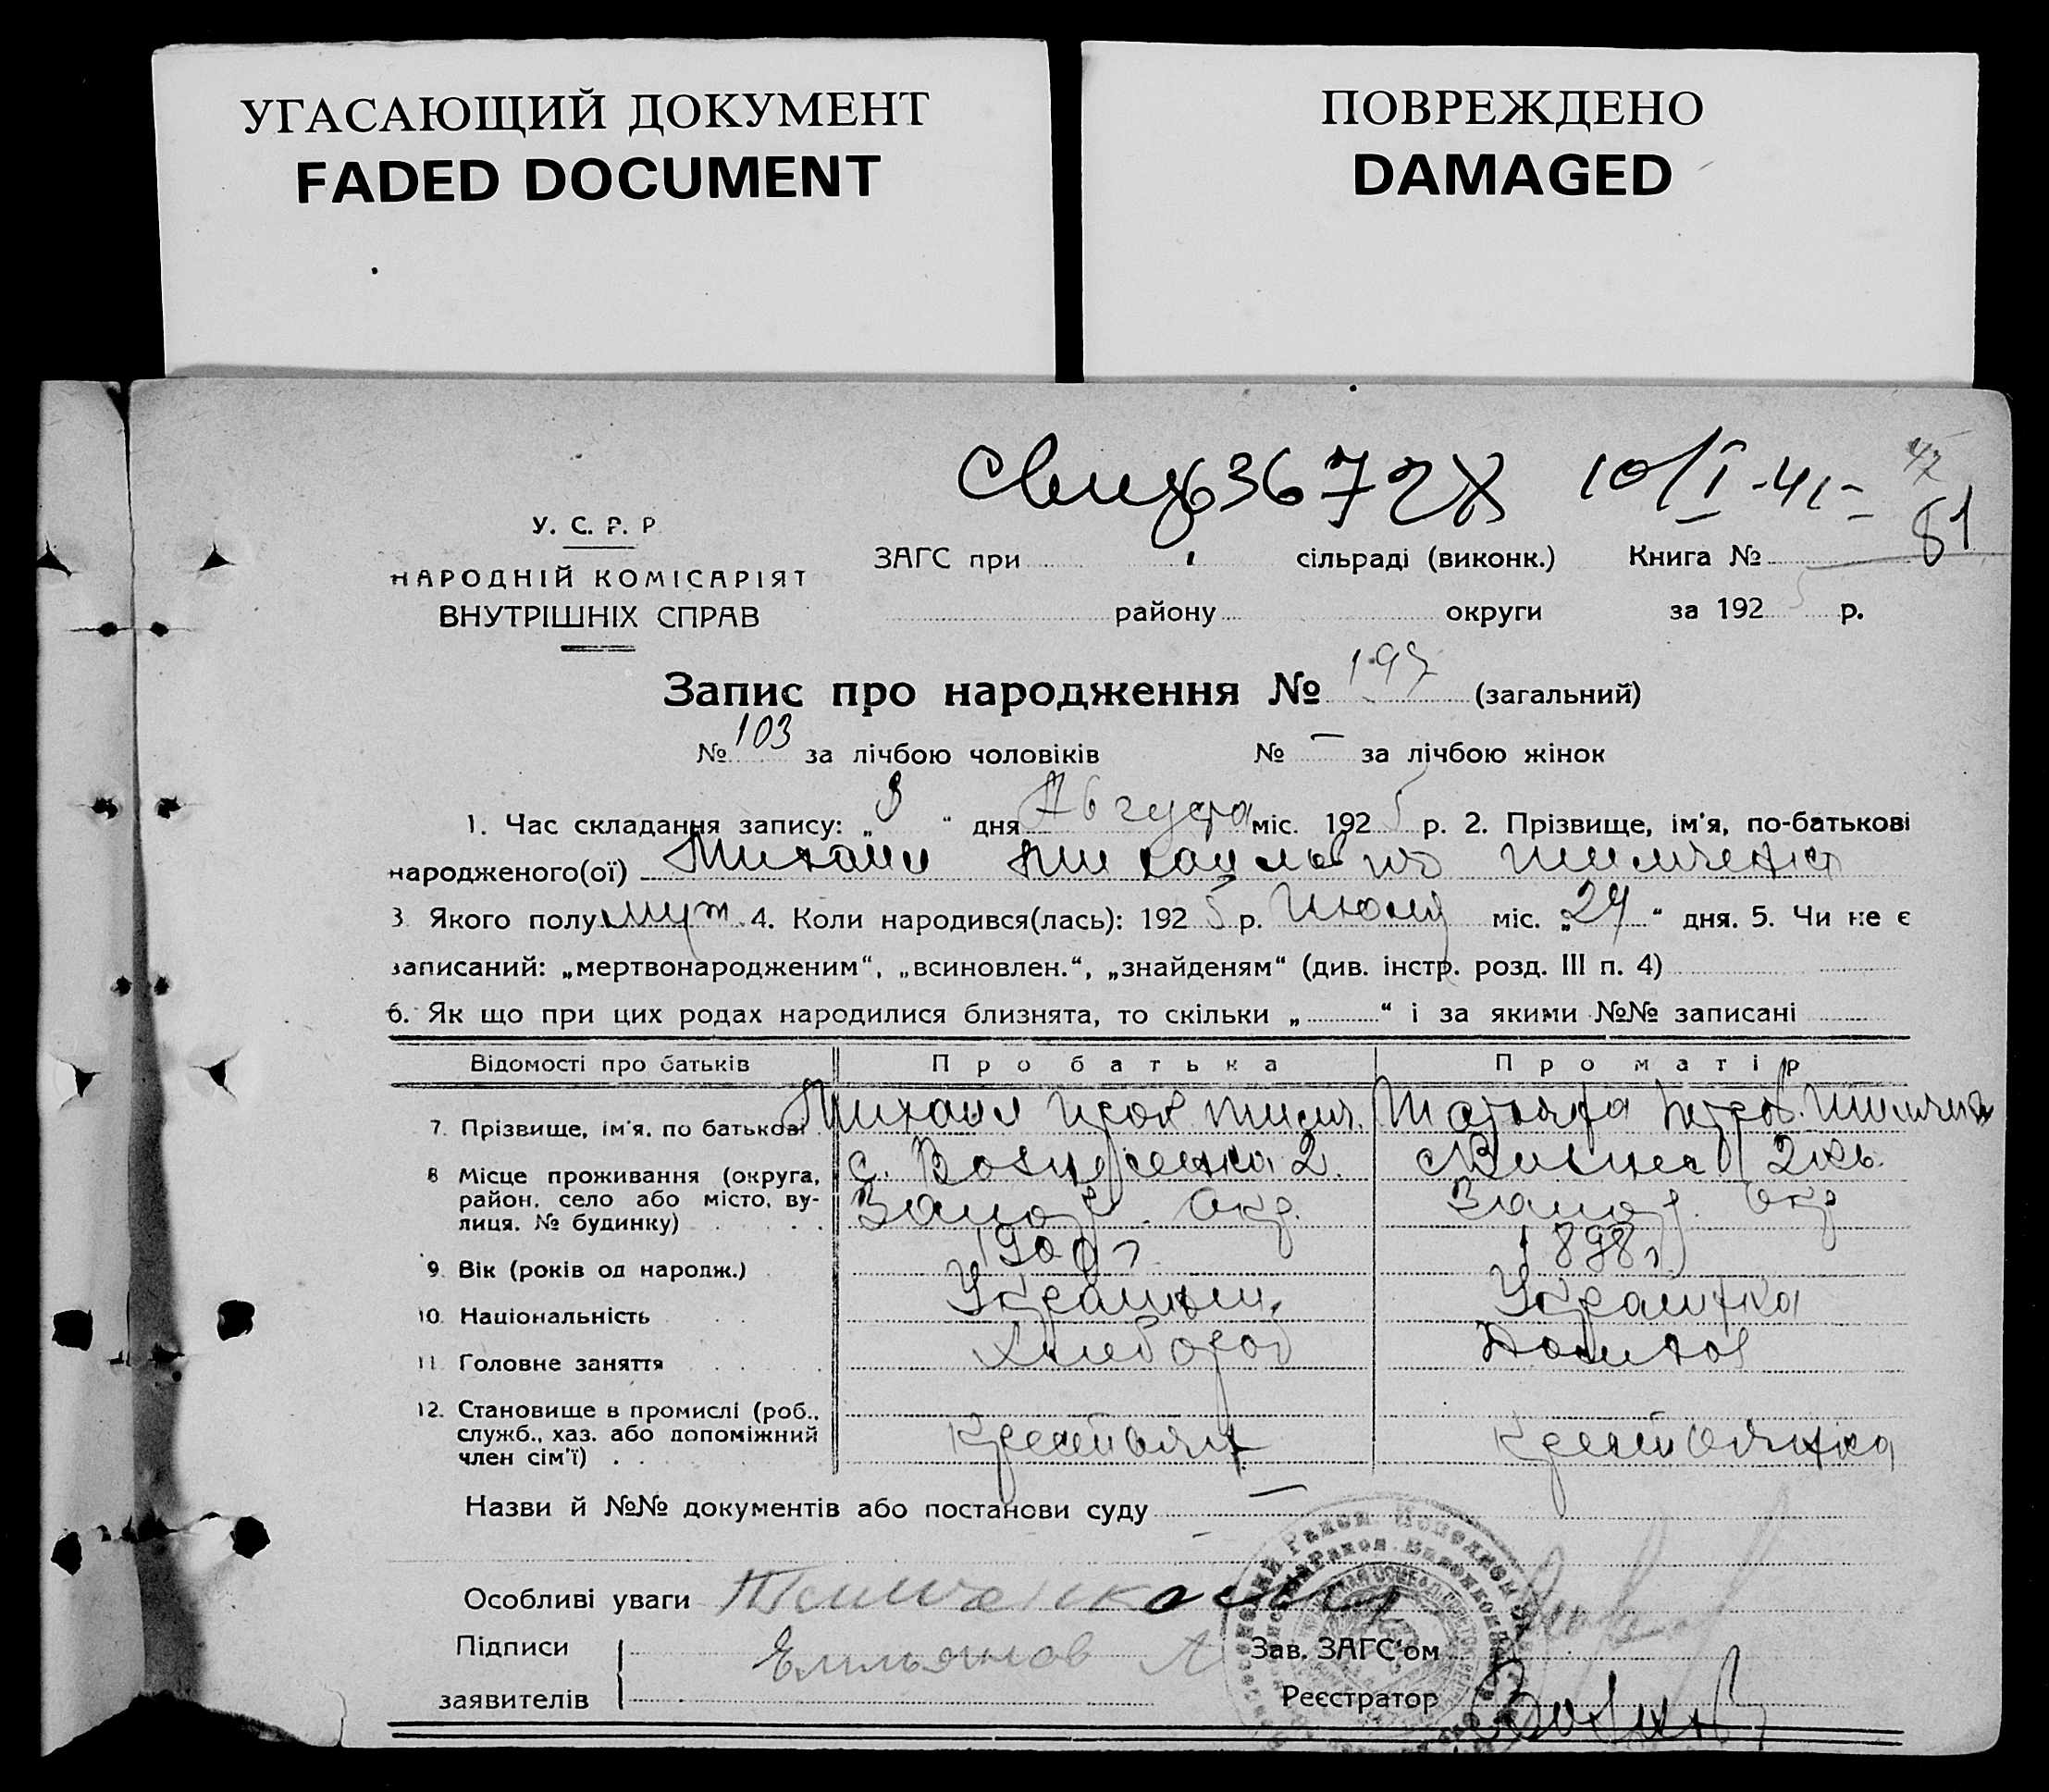 УГАСАЮЩИЙ ДОКУМЕНТ
FADED DOCUMENT
ПОВРЕЖДЕНО
DAMAGED
10/I-41
81
У. С. Р. Р
НАРОДНІЙ КОМІСАРІЯТ
ВНУТРІШНІХ СПРАВ
ЗАГС при сільраді (виконк.) Книга №
району округи за 192 5 р.
Запис про народження № 197 (загальний)
№ 103 за лічбою чоловіків № — за лічбою жінок
1. Час складання запису: „ " дня Августа міс. 192 5 р. 2. Прізвище, ім'я, по-батькові
народженого(ої) Михаил Михайлович
3. Якого полу муж. 4. Коли народився(лась): 192 5 р. Июля міс. „24" дня. 5. Чи не є
записаний: „мертвонародженим", „всиновлен.", „знайденям" (див. інстр. розд. III п. 4)
6. Як що при цих родах народилися близнята, то скільки „ " і за якими №№ записані
Відомості про батьків Про батька Про матір
7. Прізвище, ім'я, по батькові Михаил Татьяна Петров.
8 Місце проживання (округа, район, село або місто, вулиця, № будинку) с. Вознесенка 2. Запор. Окр. Запор. Окр
9. Вік (років од народж.) 1900 г. 1898 г.
10. Національність Украинец Украинка
11. Головне заняття Хлебороб Домохоз
12. Становище в промислі (роб., служб., хаз. або допоміжний член сім'ї) Крестьян Крестьянка
Назви й №№ документів або постанови суду —
Особливі уваги
Підписи
заявителів
Емельянов А
Зав. ЗАГС'ом
Реєстратор